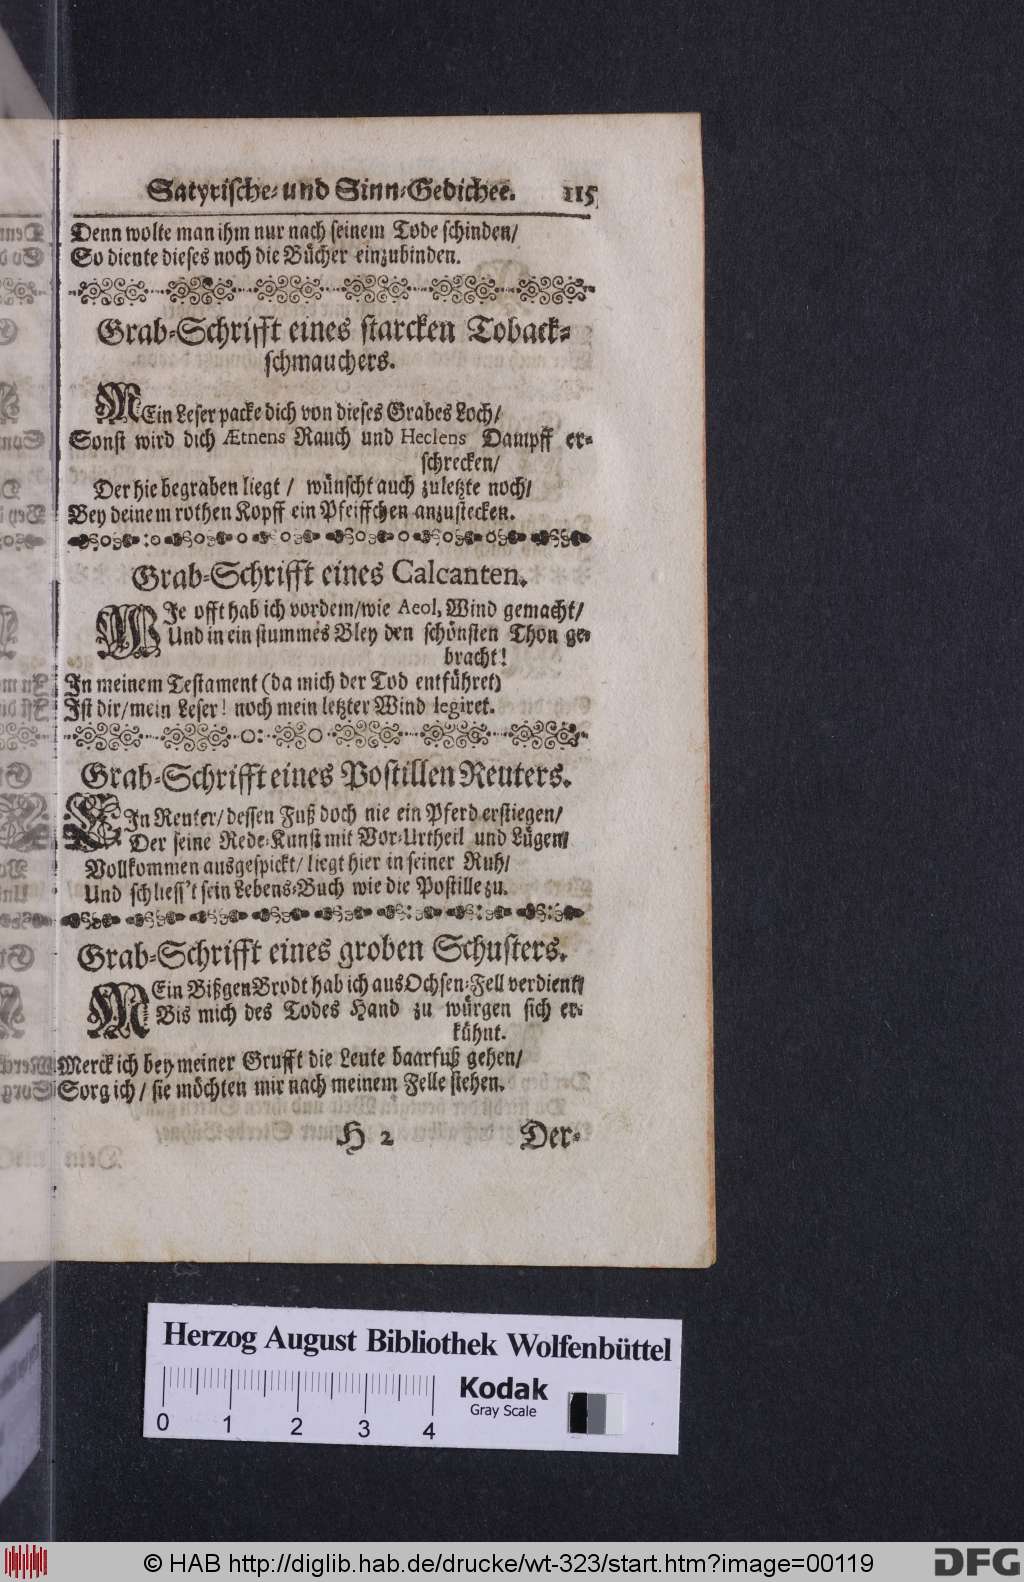 Satyrische- und Sinn-Gedichee. 115
Denn wolte man ihm nur nach seinem Tode schinden/
So diente dieses noch die Bücher einzubinden.
Grab-Schrifft eines starcken Toback-
schmauchers.
MEin Leser packe dich von dieses Grabes Loch/
Sonst wird dich Ætnens Rauch und Heclens Dampff er-
schrecken/
Der hie begraben liegt / wünscht auch zuletzte noch/
Bey deinem rothen Kopff ein Pfeiffchen anzustecken.
Grab-Schrifft eines Calcanten.
WIe offt hab ich vordem/wie Aeol, Wind gemacht/
Und in ein stummes Bley den schönsten Thon ge-
bracht!
In meinem Testament (da mich der Tod entführet)
Ist dir/mein Leser! noch mein letzter Wind legiret.
Grab-Schrifft eines Postillen Reuters.
EIn Reuter/dessen Fuß doch nie ein Pferd erstiegen/
Der seine Rede-Kunst mit Vor-Urtheil und Lügen/
Vollkommen ausgespickt/ liegt hier in seiner Ruh/
Und schliess't sein Lebens-Buch wie die Postille zu.
Grab-Schrifft eines groben Schusters.
MEin Bißgen Brodt hab ich aus Ochsen-Fell verdient/
Bis mich des Todes Hand zu würgen sich er-
kühnt.
Merck ich bey meiner Grufft die Leute baarfuß gehen/
Sorg ich / sie möchten mir nach meinem Felle stehen.
H 2 Der-
Herzog August Bibliothek Wolfenbüttel
Kodak
Gray Scale
0 1 2 3 4
© HAB http://diglib.hab.de/drucke/wt-323/start.htm?image=00119
DFG